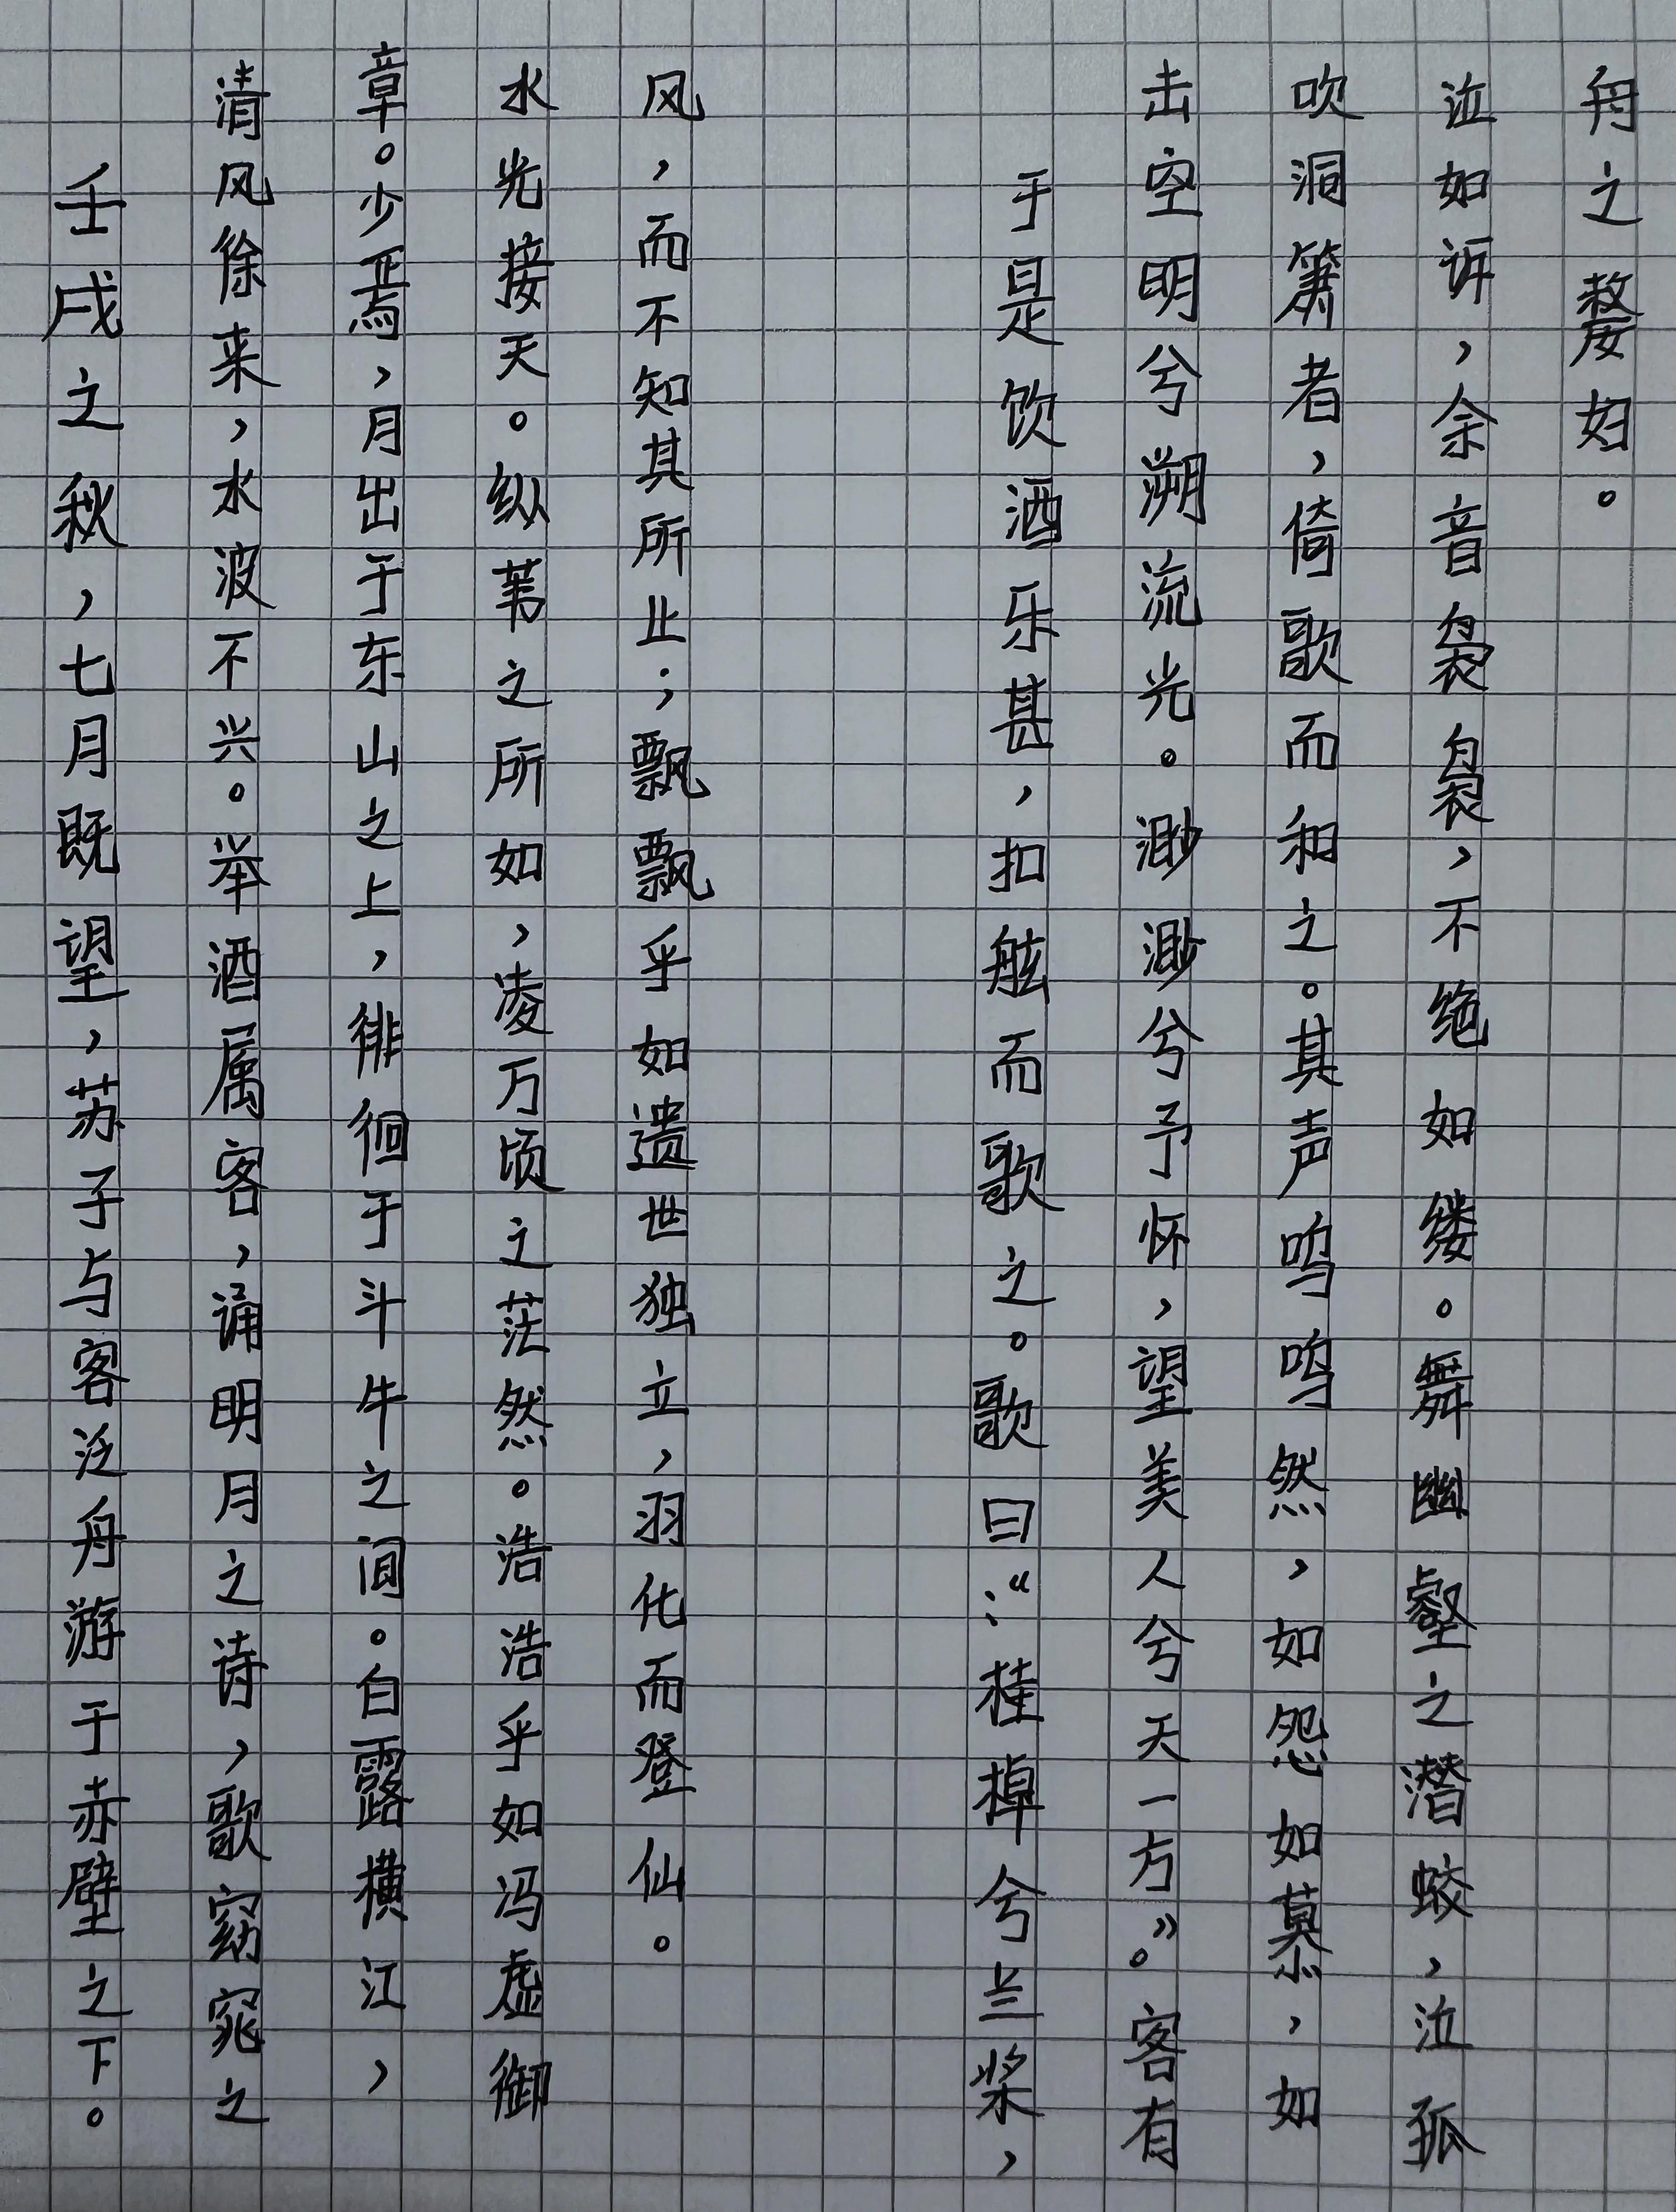 壬戌之秋，七月既望，苏子与客泛舟游于赤壁之下。
清风徐来，水波不兴。举酒属客，诵明月之诗，歌窈窕之
章。少焉，月出于东山之上，徘徊于斗牛之间。白露横江，
水光接天。纵苇之所如，凌万顷之茫然。浩浩乎如冯虚御
风，而不知其所止；飘飘乎如遗世独立，羽化而登仙。
于是饮酒乐甚，扣舷而歌之。歌曰：“桂棹兮兰桨，
击空明兮溯流光。渺渺兮予怀，望美人兮天一方”。客有
吹洞箫者，倚歌而和之。其声呜呜然，如怨如慕，如
泣如诉，余音袅袅，不绝如缕。舞幽壑之潜蛟，泣孤
舟之嫠妇。